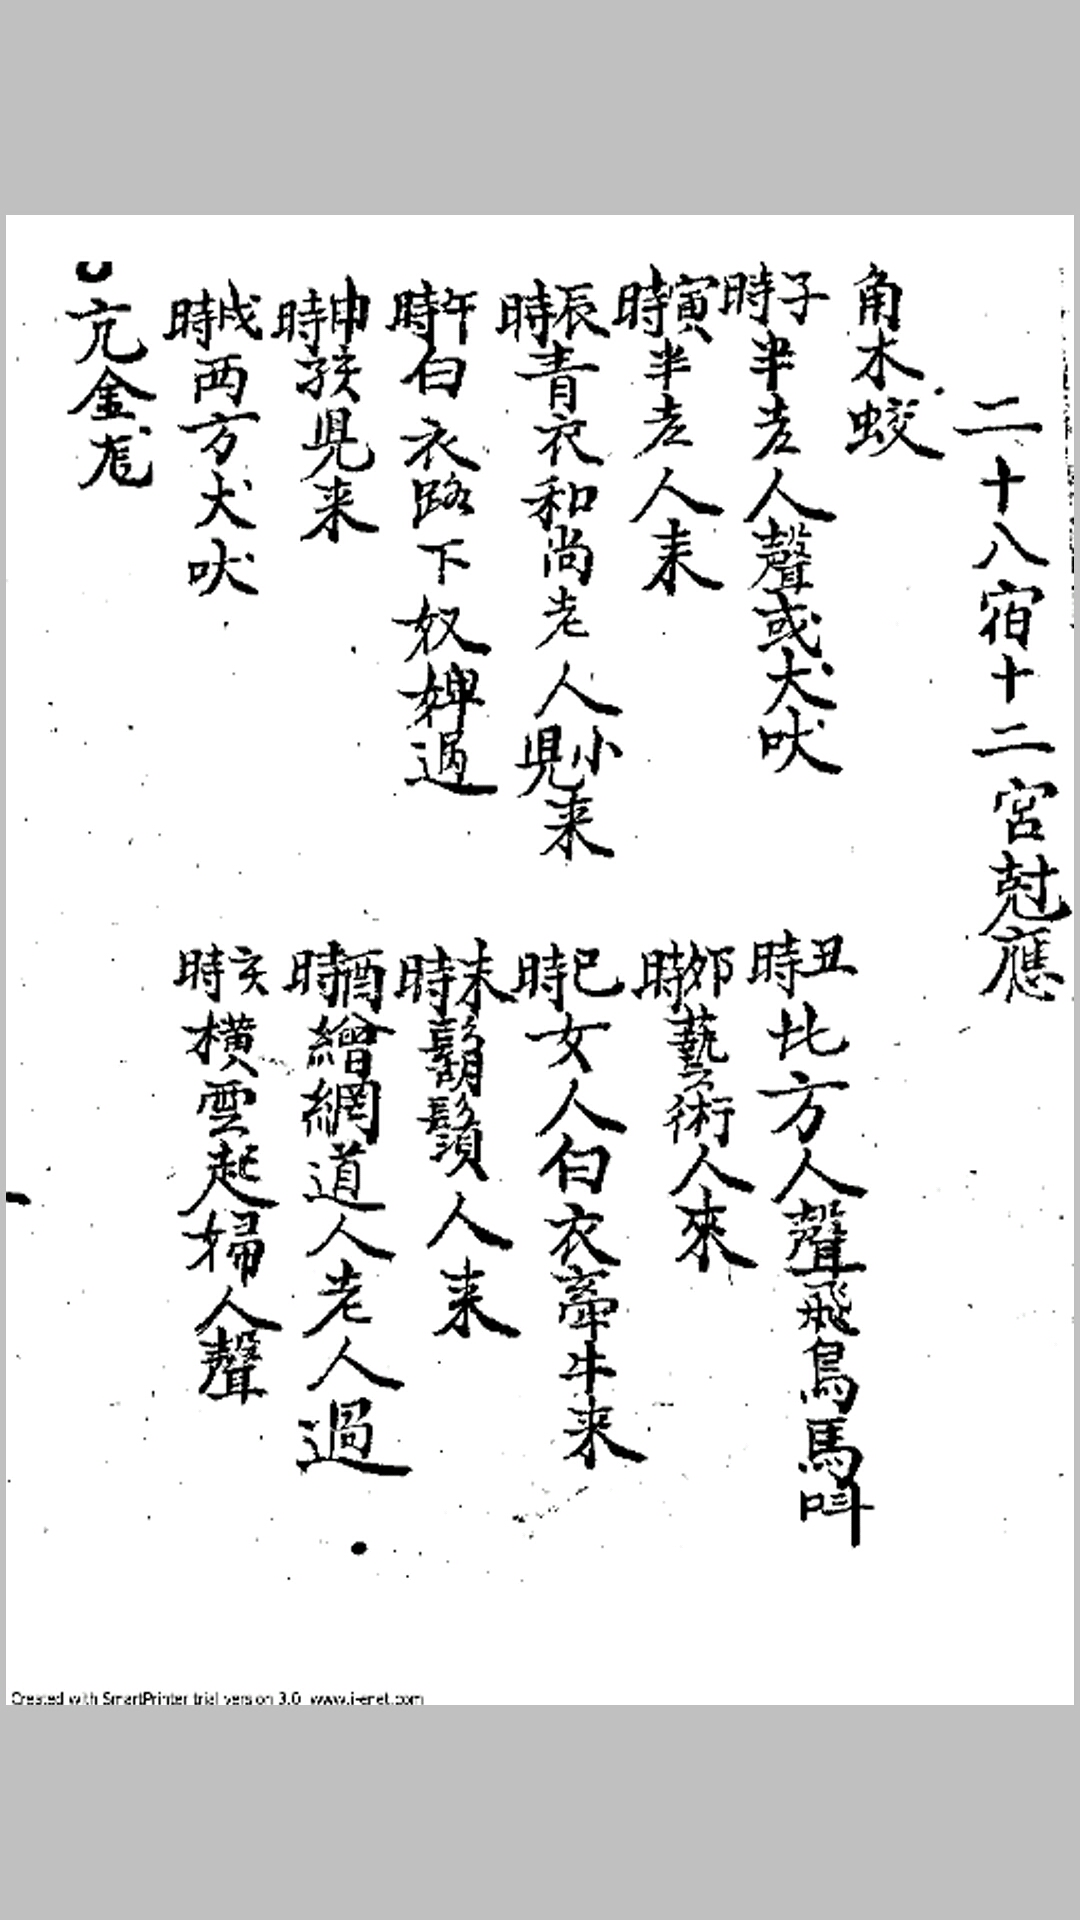 二十八宿十二宮尅應
角木蛟
子時半老人聲或犬吠
丑時北方人聲飛鳥馬呌
寅時半老人来
卯時藝術人來
辰時青衣和尚老人小児来
巳時女人白衣牽牛来
午時白衣路下奴婢過
未時鬍鬚人来
申時孩児来
酉時繒網道人老人過
戌時両方犬吠
亥時橫雲起婦人聲
亢金尨
Created with SmartPrinter trial version 3.0 www.i-enet.com